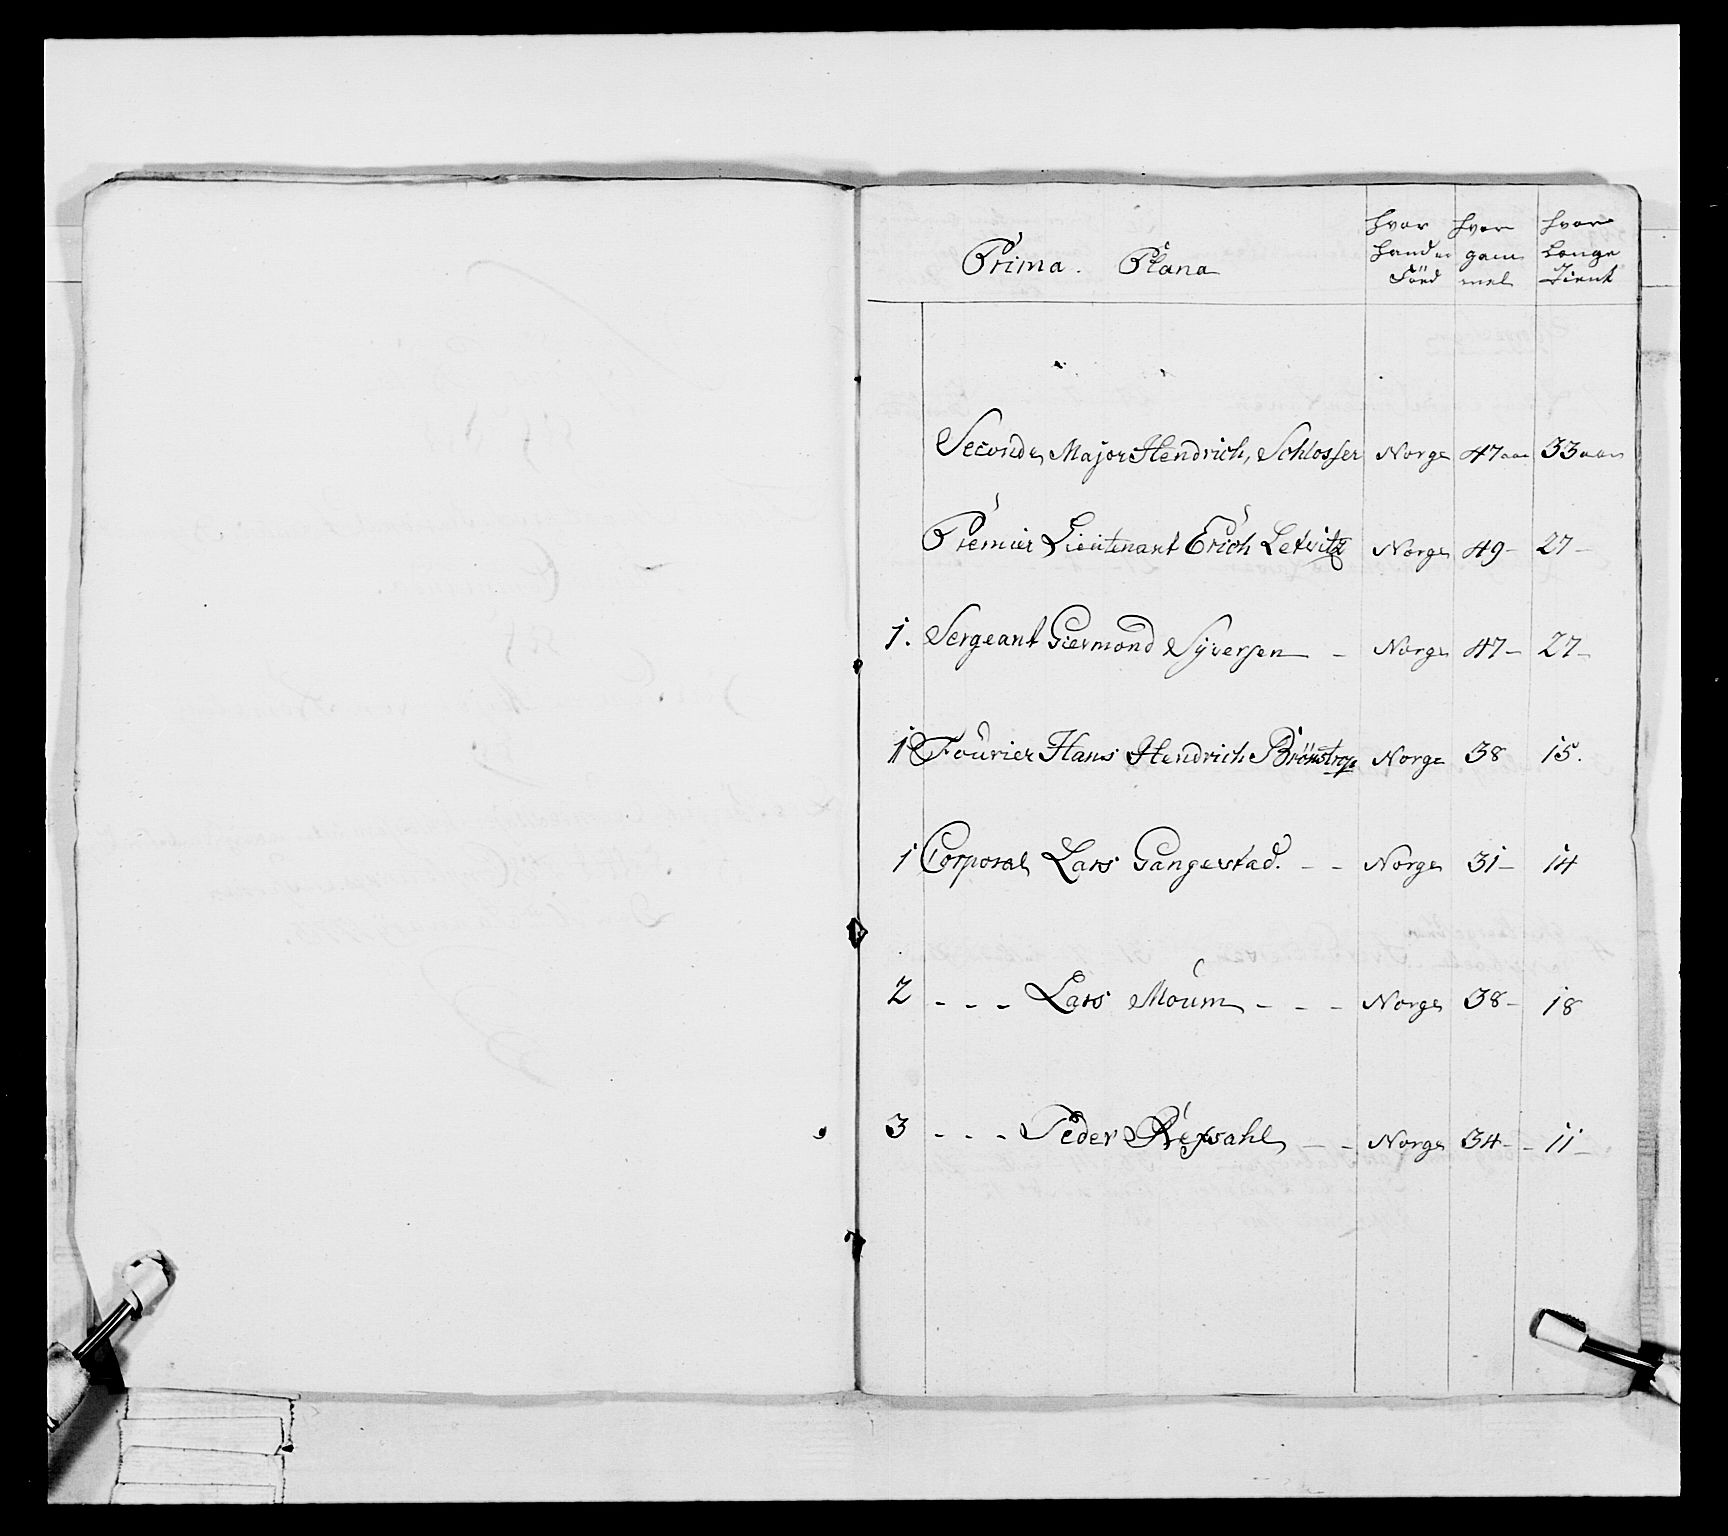 Prima. Plana
hvor hand er Föed
hvor gam mel
hvor Lenge Tient
Seconde Major Hendrich Schlosser Norge 47 aar 33 aar
Premier Lieutenant Erich Letvitz Norge 49 - 27 -
1. Sergeant Giermond Syversen - Norge 47 - 27 -
1 Fourier Hans Hendrich Brönstrop Norge 38 15.
1 Corporal Lars Gangestad. - - Norge 31 - 14
2 - - - Lars Moum - - - Norge 38 - 18
3 - - - Peder Refsahl - - Norge 34 - - 11 -